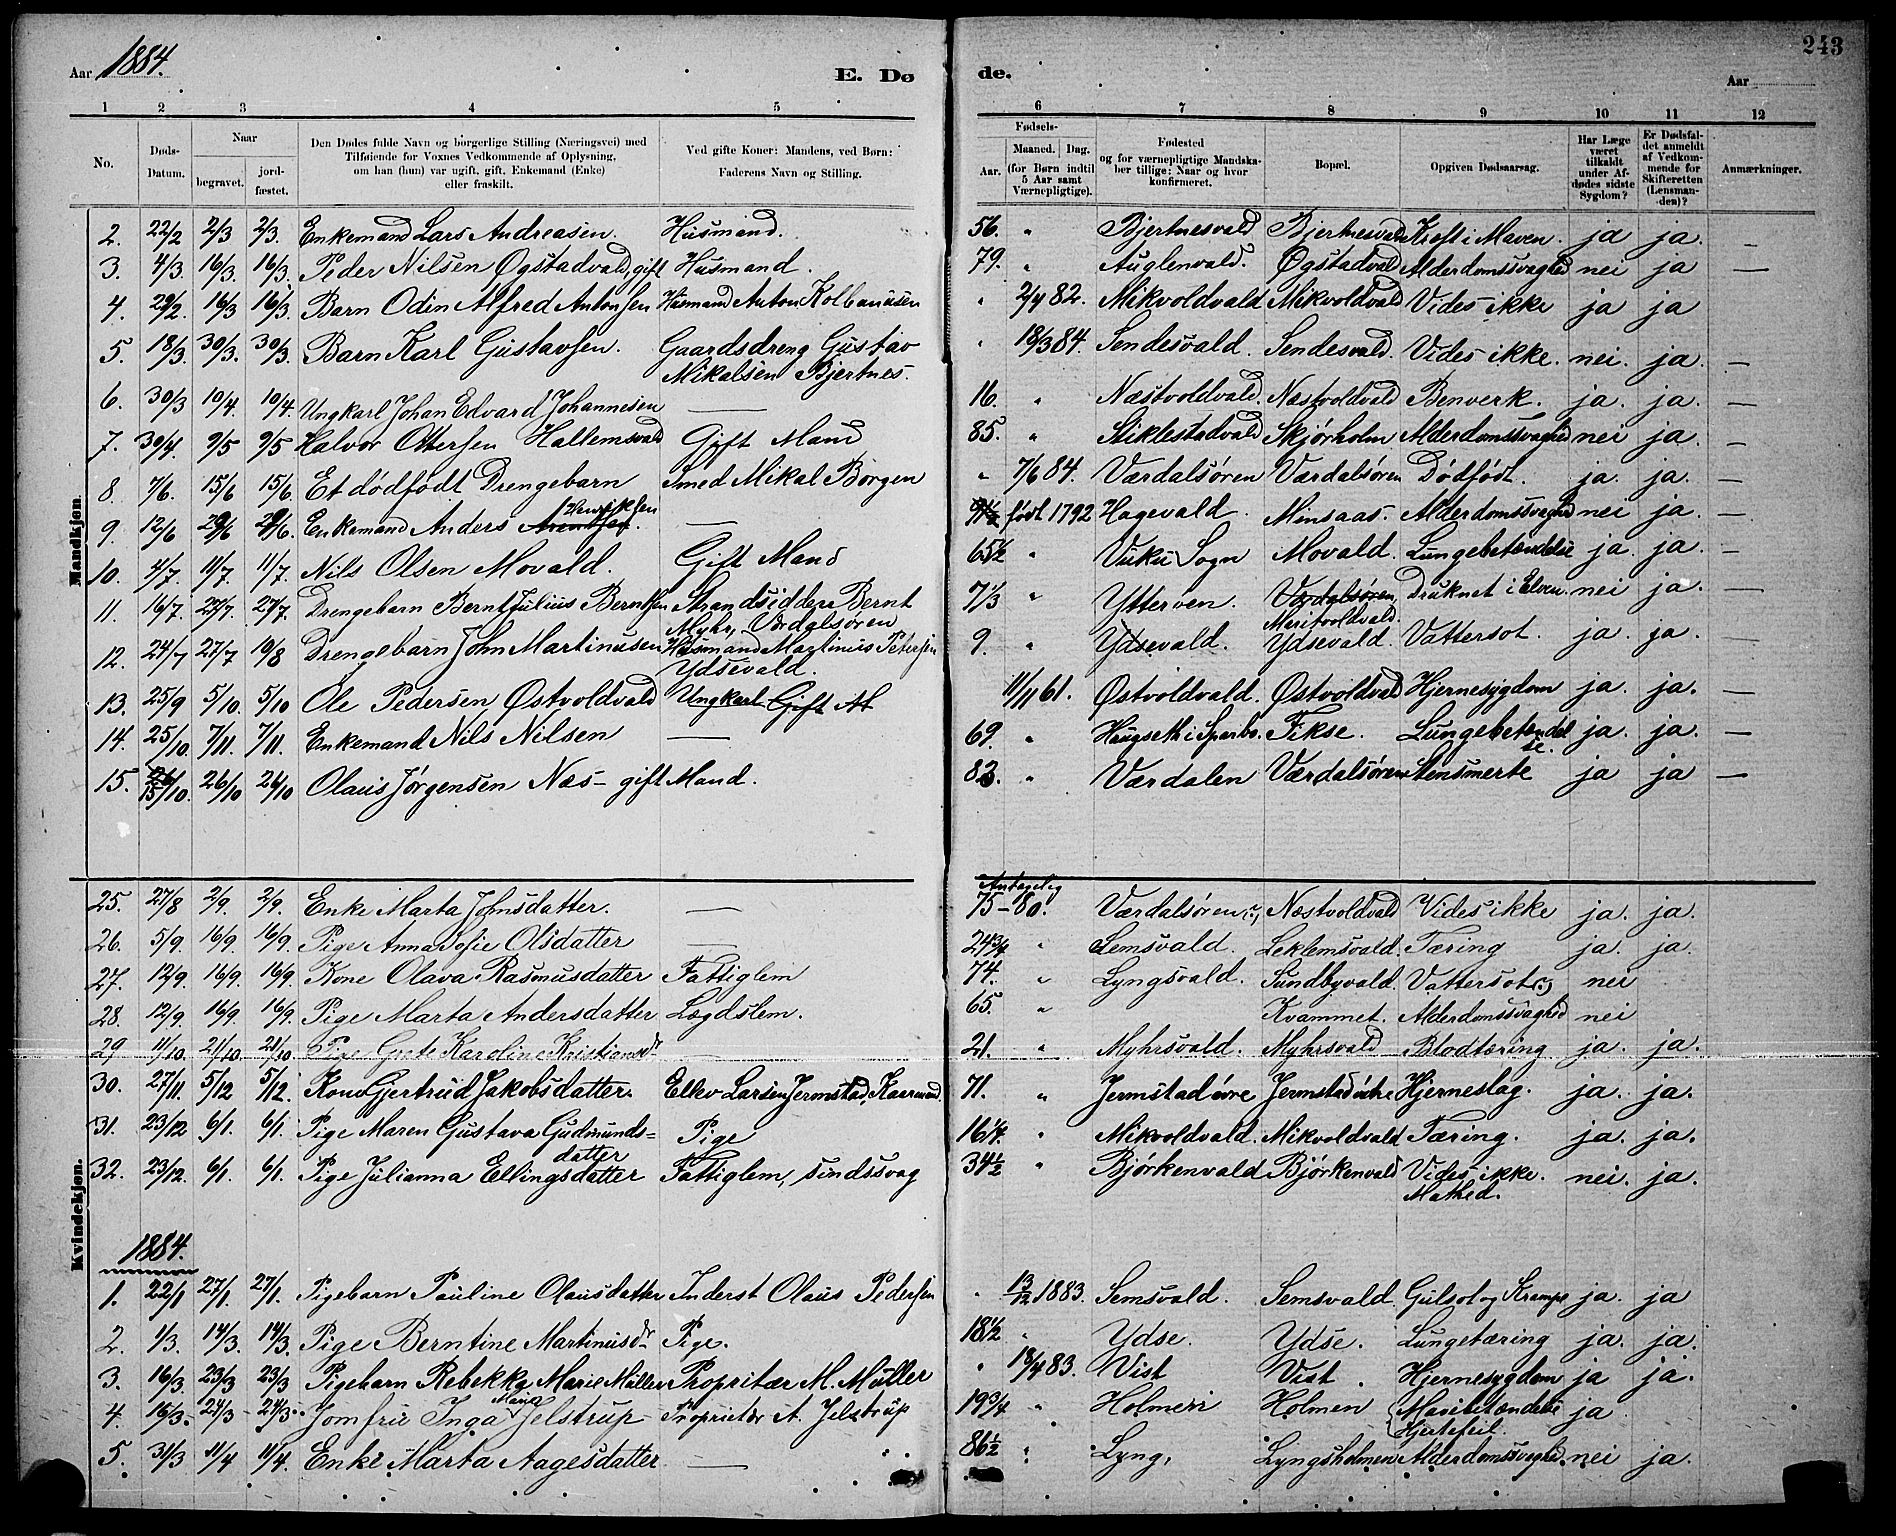 243
Aar 1884. E. Dø de. Aar
1 2 3 4 5 6 7 8 9 10 11 12
No. Døds-Datum. Naar begravet. jordfæstet. Den Dødes fulde Navn og borgerlige Stilling (Næringsvei) med Tilføiende for Voxnes Vedkommende af Oplysning, om han (hun) var ugift, gift, Enkemand (Enke) eller fraskilt. Ved gifte Koner: Mandens, ved Børn: Faderens Navn og Stilling. Fødsels- Aar. Maaned. Dag. (for Børn indtil 5 Aar samt Værnepligtige). Fødested og for værnepligtige Mandskaber tillige: Naar og hvor konfirmeret. Bopæl. Opgiven Dødsaarsag. Har Læge været tilkaldt under Afdødes sidste Sygdom? Er Dødsfaldet anmeldt af Vedkommende for Skifteretten (Lensmanden)? Anmærkninger.
Mandkjøn.
2. 22/2 2/3 2/3. Enkemand Lars Andreasen. Husmand. 56. " Bjertnesvald Bjertnesvald Kreft i Maven. ja ja. —
3. 4/3. 16/3. 16/3. Peder Nilsen Øgstadvald, gift Husmand. 79. " Auglenvald. Øgstadvald Alderdomssvaghed nei ja —
4. 29/2. 16/3 16/3. Barn Odin Alfred Antonsen Husmand Anton Kolbanusen " 2/4 82. Mikvoldvald Mikvoldvald Vides ikke ja ja
5. 18/3. 30/3. 30/3. Barn Karl Gustavsen. Gaardsdreng Gustav Mikalsen Bjertnes. " 18/3 84. Sendesvald. Sendesvald. Vides ikke. nei. ja. —
6. 30/3 10/4. 10/4. Ungkarl Johan Edvard Johannesen — 16. " Næstvoldvald Næstvoldvald Benverk. ja. ja. —
7. 30/4. 9/5 9/5 Halvor Ottersen Hallemsvald Gift Mand 85. " Stiklestadvald Skjørholm Alderdomssvaghed nei ja. —
8. 7/6. 15/6 15/6. Et dødfødt Drengebarn Smed Mikal Borgen " 7/6 84. Værdalsøren Værdalsøren Dødfødt. ja. ja. —
9. 12/6 29/6 29/6. Enkemand Anders Henriksen — født 1792 Hagevald. Minsaas. Alderdomssvaghed nei ja. —
10. 4/7. 11/7. 11/7. Nils Olsen Movald. Gift Mand 65 1/2 " Vuku Sogn Movald. Lungebetændelse ja. ja. —
11. 16/7 27/7. 27/7. Drengebarn Bernt Julius Berntsen Strandsidder Bernt Myhr, Værdalsøren 7 1/3 " Ytterøen. Værdalsøren, Maritvoldvald. Druknet i Elven. nei ja. —
12. 24/7 27/7 10/8 Drengebarn John Martinusen Husmand Martinius Petersen Ydsevald. 9. " Ydsevald. Ydsevald. Vattersot. ja. ja. —
13. 25/9 5/10. 5/10 Ole Pedersen, Østvoldvald Ungkarl Gift 11/11 61. Østvoldvald. Østvoldvald Hjernesygdom ja. ja. —
14. 25/10. 7/11. 7/11. Enkemand Nils Nilsen — 69. " Haugseth i Sparbo. Fikse. Lungebetændelse. ja. ja. —
15. 15/10. 26/10 26/10 Olaus Jørgensen Næs – gift Mand. 83. " Værdalen Værdalsøren Stensmerte ja ja —
Kvindekjøn.
25. 27/8 2/9. 2/9. Enke Marta Johnsdatter. — Antagelig 75–80. Værdalsøren (?) Næstvoldvald Vides ikke ja. ja.
26. 5/9. 16/9. 16/9. Pige Anna Sofie Olsdatter — 24 3/4 " Semsvald. Leklemsvald. Tæring ja. ja.
27. 12/9. 16/9. 16/9. Kone Olava Rasmusdatter Fattiglem 74. " Lyngsvald. Sundbyvald. Vattersot (?) nei
28. 12/9. 16/9. 16/9. Pige Marta Andersdatter Lægdslem. 65. " Kvammet. Alderdomssvaghed nei
29 11/10. 21/10. 21/10. Pige Grete Karoline Kristiansdr — 21. " Myhrsvald. Myhrsvald Blodtæring ja. ja.
30. 27/11. 5/12 5/12. Kone Gjertrud Jakobsdatter. Ellev Larsen Jermstad, Kaarmand. 71. " Jermstad øvre Jermstad østre Hjerneslag. ja. ja.
31. 23/12 6/1. 6/1. Pige Maren Gustava Gudmundsdatter Pige 16 1/4 " Mikvoldvald. Mikvoldvald Tæring. ja. ja.
32. 23/12. 6/1. 6/1. Pige Julianna Ellingsdatter Fattiglem, sindssvag 34 1/2 " Bjørkenvald Bjørkenvald Vides ikke. Mathed. nei. ja.
1884.
1. 22/1 27/1. 27/1. Pigebarn Pauline Olausdatter Inderst Olaus Pedersen " 13/12 1883. Semsvald. Semsvald. Gulsot og Krampe ja. ja
2. 1/3. 14/3. 14/3. Pige Berntine Martinusdr Pige. 18 1/2 " Ydse. Ydse. Lungetæring ja. ja.
3. 16/3. 23/3 23/3 Pigebarn Rebekka Marie Müller Proprietær M. Müller " 18/4 83. Vist Vist. Hjernesygdom ja ja.
4. 16/3. 24/3 – 24/3. Jomfru Inga Marie Jelstrup – Proprietær A. Jelstrup 19 3/4 " Holmen Holmen Mavebetændelse Hjertefeil. ja
5. 31/3 11/4 11/4. Enke Marta Aagesdatter — 86 1/2 " Lyng, Lyngsholmen Alderdomssvaghed. nei ja.